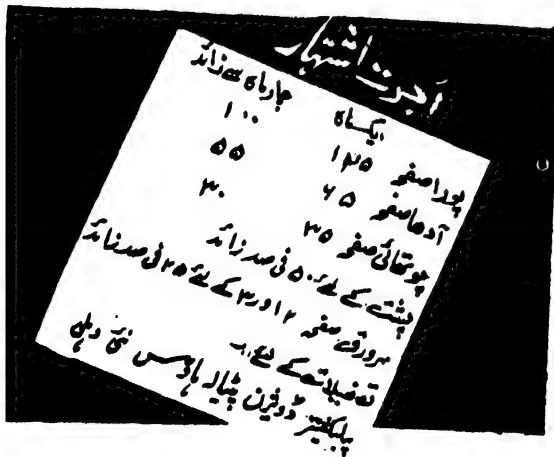 اجرت اشتہار
ایک ماہ چار ماہ سے زائد
پورا صفحہ ۱۲۵ ۱۰۰
آدھا صفحہ ۶۵ ۵۵
چوتھائی صفحہ ۳۵ ۳۰
پشت کے لئے ۵۰ فی صد زائد
سرورق صفحہ ۲ اور ۳ کے لئے ۲۵ فی صد زائد
تفصیلات کے لئے:۔
پبلیکیشنز ڈویژن پٹیالہ ہاؤس نئی دہلی